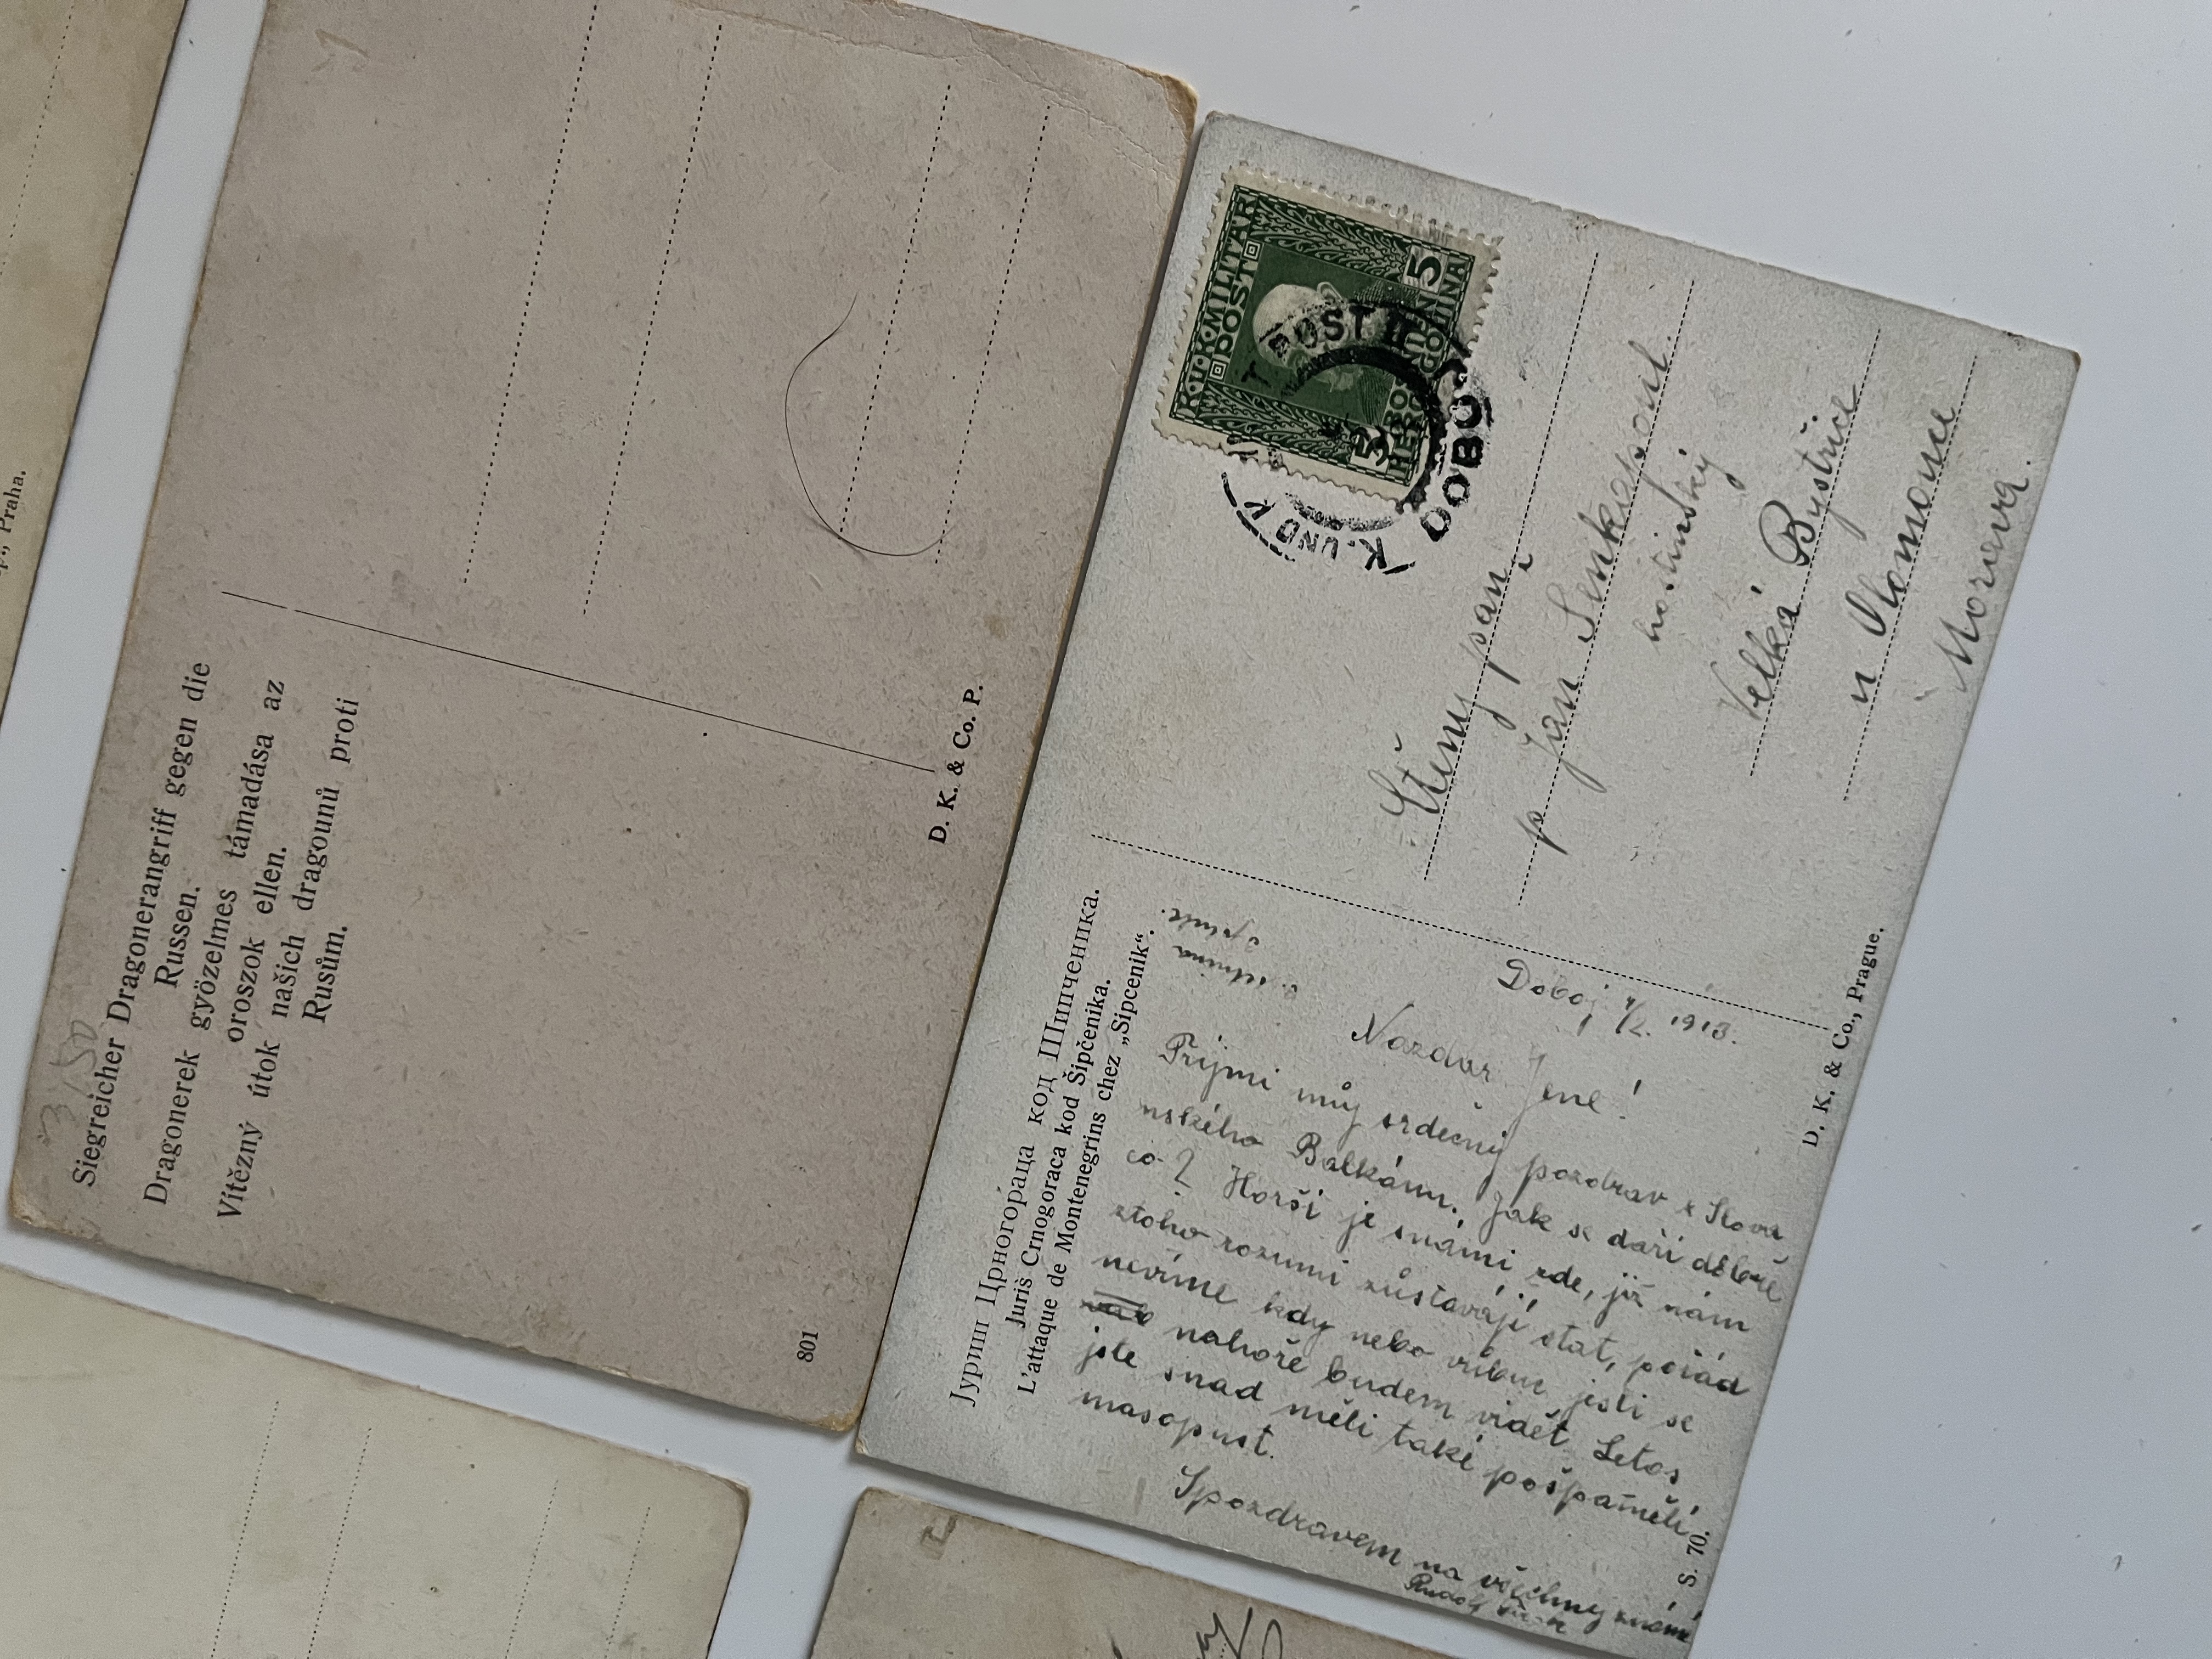 p., Praha.
3/50
Siegreicher Dragonerangriff gegen die
Russen.
Dragonerek győzelmes támadása az
oroszok ellen.
Vítězný útok našich dragounů proti
Rusům.
D. K. & Co. P.
801
Јуриш Црногораца код Шипченика.
Juriš Crnogoraca kod Šipčenika.
L'attaque de Montenegrins chez „Sipcenik“.
K.U.K.MILITÄR
POST
5 5
BOSNIEN
HERCEGOVINA
K. UND K. MILIT. POST
DOBOJ
Ctěný pán
p Jan
hostinský
Velká Bystřice
u Olomouce
Morava.
D. K. & Co., Prague.
Doboj 4/2. 1913.
Nazdar Jene!
Přijmi můj srdečný pozdrav z Slova
nského Balkánu. Jak se daří dobře
co? Horší je snámi zde, již nám
ztoho rozumi zůstávají stat, pořád
nevíme kdy nebo vůbec jesli se
nahoře budem vidět Letos
jste snad měli také pošpamělí
masopust.
Spozdravem na všechny známé
Rudolf
S. 70.